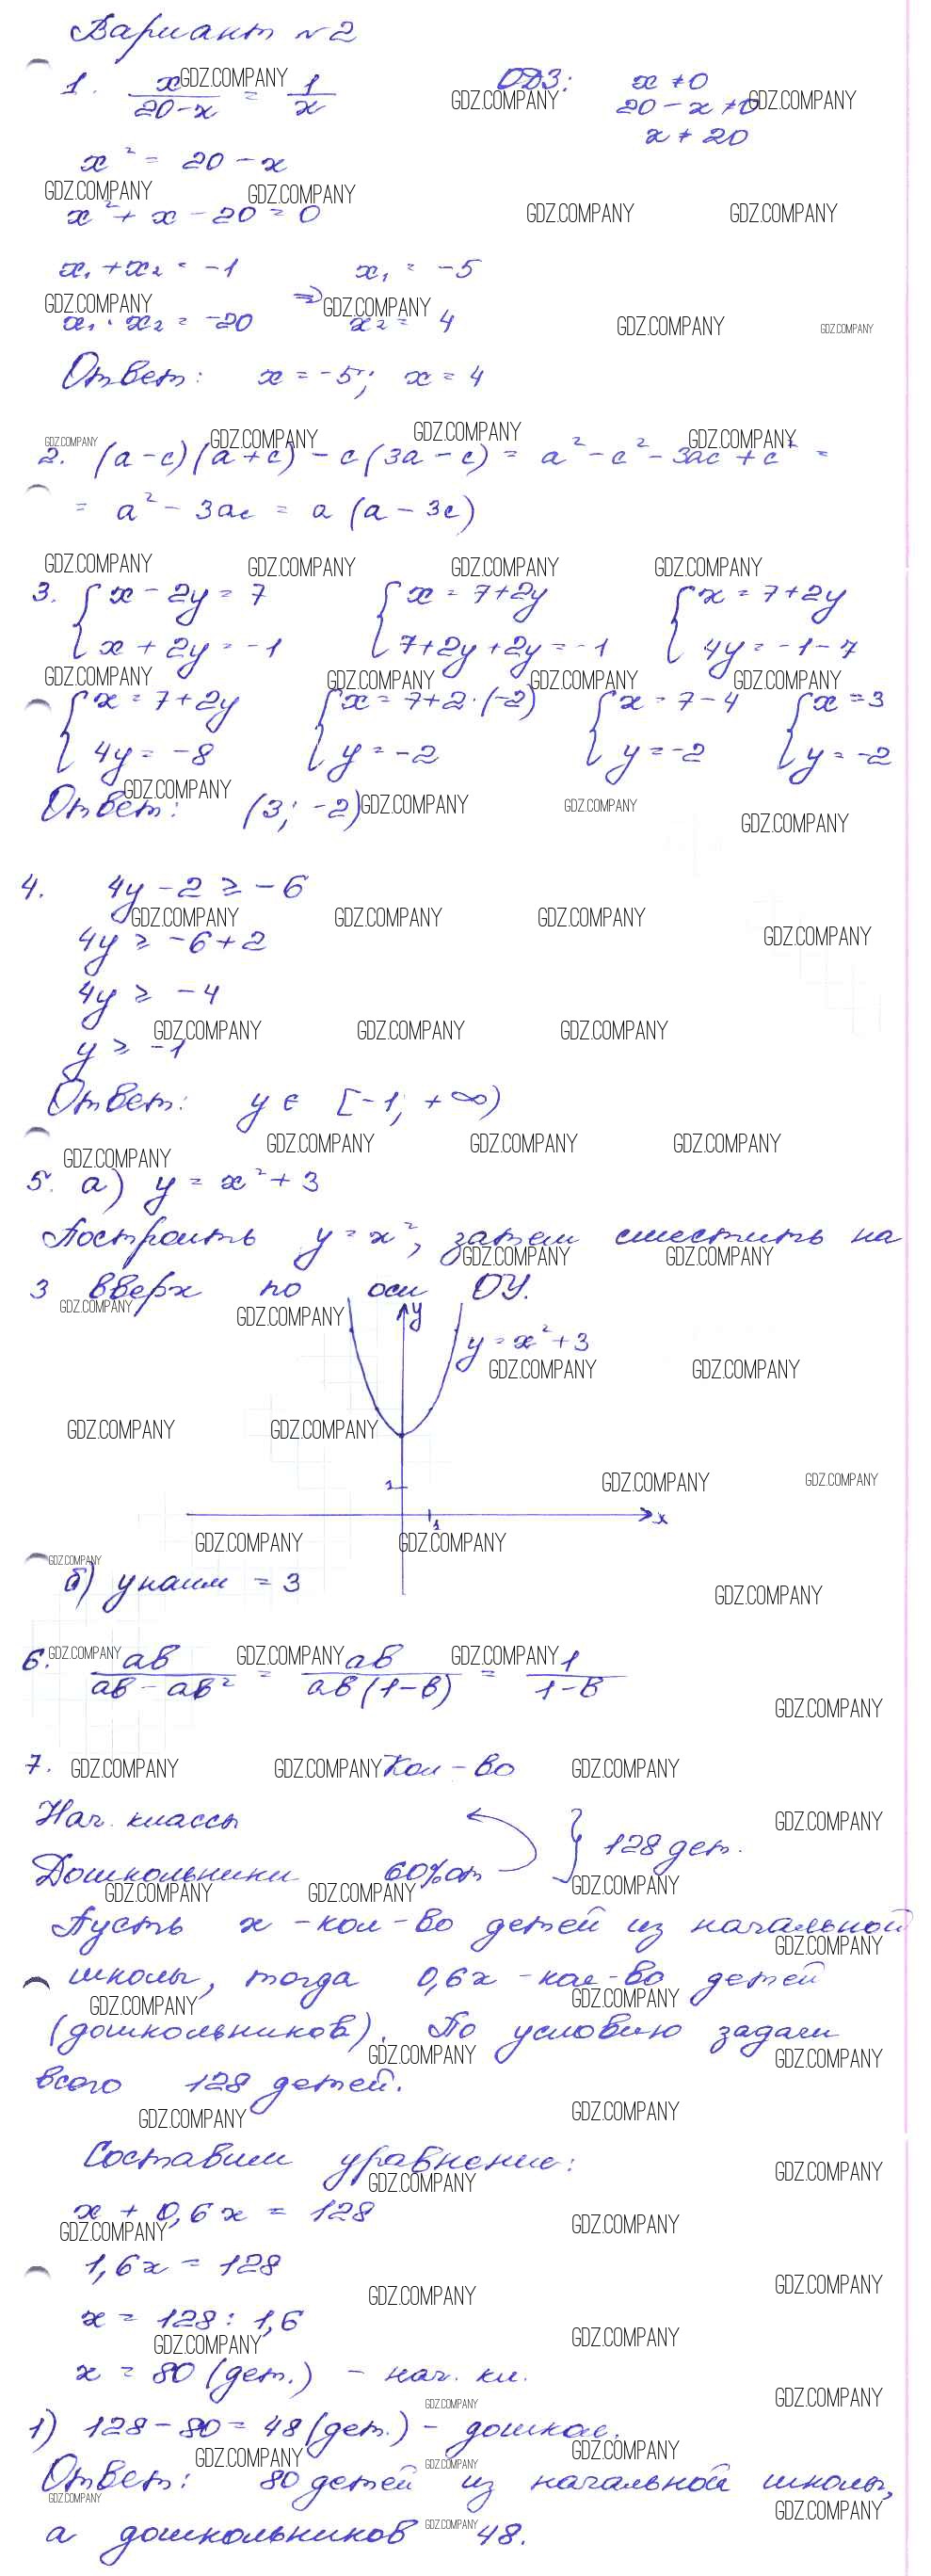 Вариант №2
1. x/(20-x) = 1/x ОДЗ: x ≠ 0
20 - x ≠ 0
x ≠ 20
x² = 20 - x
x² + x - 20 = 0
x₁ + x₂ = -1 x₁ = -5
x₁ · x₂ = -20 => x₂ = 4
Ответ: x = -5; x = 4
2. (a-c)(a+c) - c(3a-c) = a² - c² - 3ac + c² =
= a² - 3ac = a(a-3c)
3. { x - 2y = 7 { x = 7+2y { x = 7+2y
{ x + 2y = -1 { 7+2y+2y = -1 { 4y = -1-7
{ x = 7+2y { x = 7+2·(-2) { x = 7-4 { x = 3
{ 4y = -8 { y = -2 { y = -2 { y = -2
Ответ: (3; -2)
4. 4y - 2 ≥ -6
4y ≥ -6+2
4y ≥ -4
y ≥ -1
Ответ: y ∈ [-1; +∞)
5. а) y = x² + 3
Построить y = x², затем сместить на
3 вверх по оси ОУ.
y
y = x² + 3
1
x
1
б) yнаим = 3
6. ab/(ab - ab²) = ab/(ab(1-b)) = 1/(1-b)
7. Кол-во
Нач. классы
} 128 дет.
Дошкольники 60% от
Пусть x - кол-во детей из начальной
школы, тогда 0,6x - кол-во детей
(дошкольников). По условию задачи
всего 128 детей.
Составим уравнение:
x + 0,6x = 128
1,6x = 128
x = 128 : 1,6
x = 80 (дет.) - нач. кл.
1) 128 - 80 = 48 (дет.) - дошкол.
Ответ: 80 детей из начальной школы,
а дошкольников 48.
GDZ.COMPANY